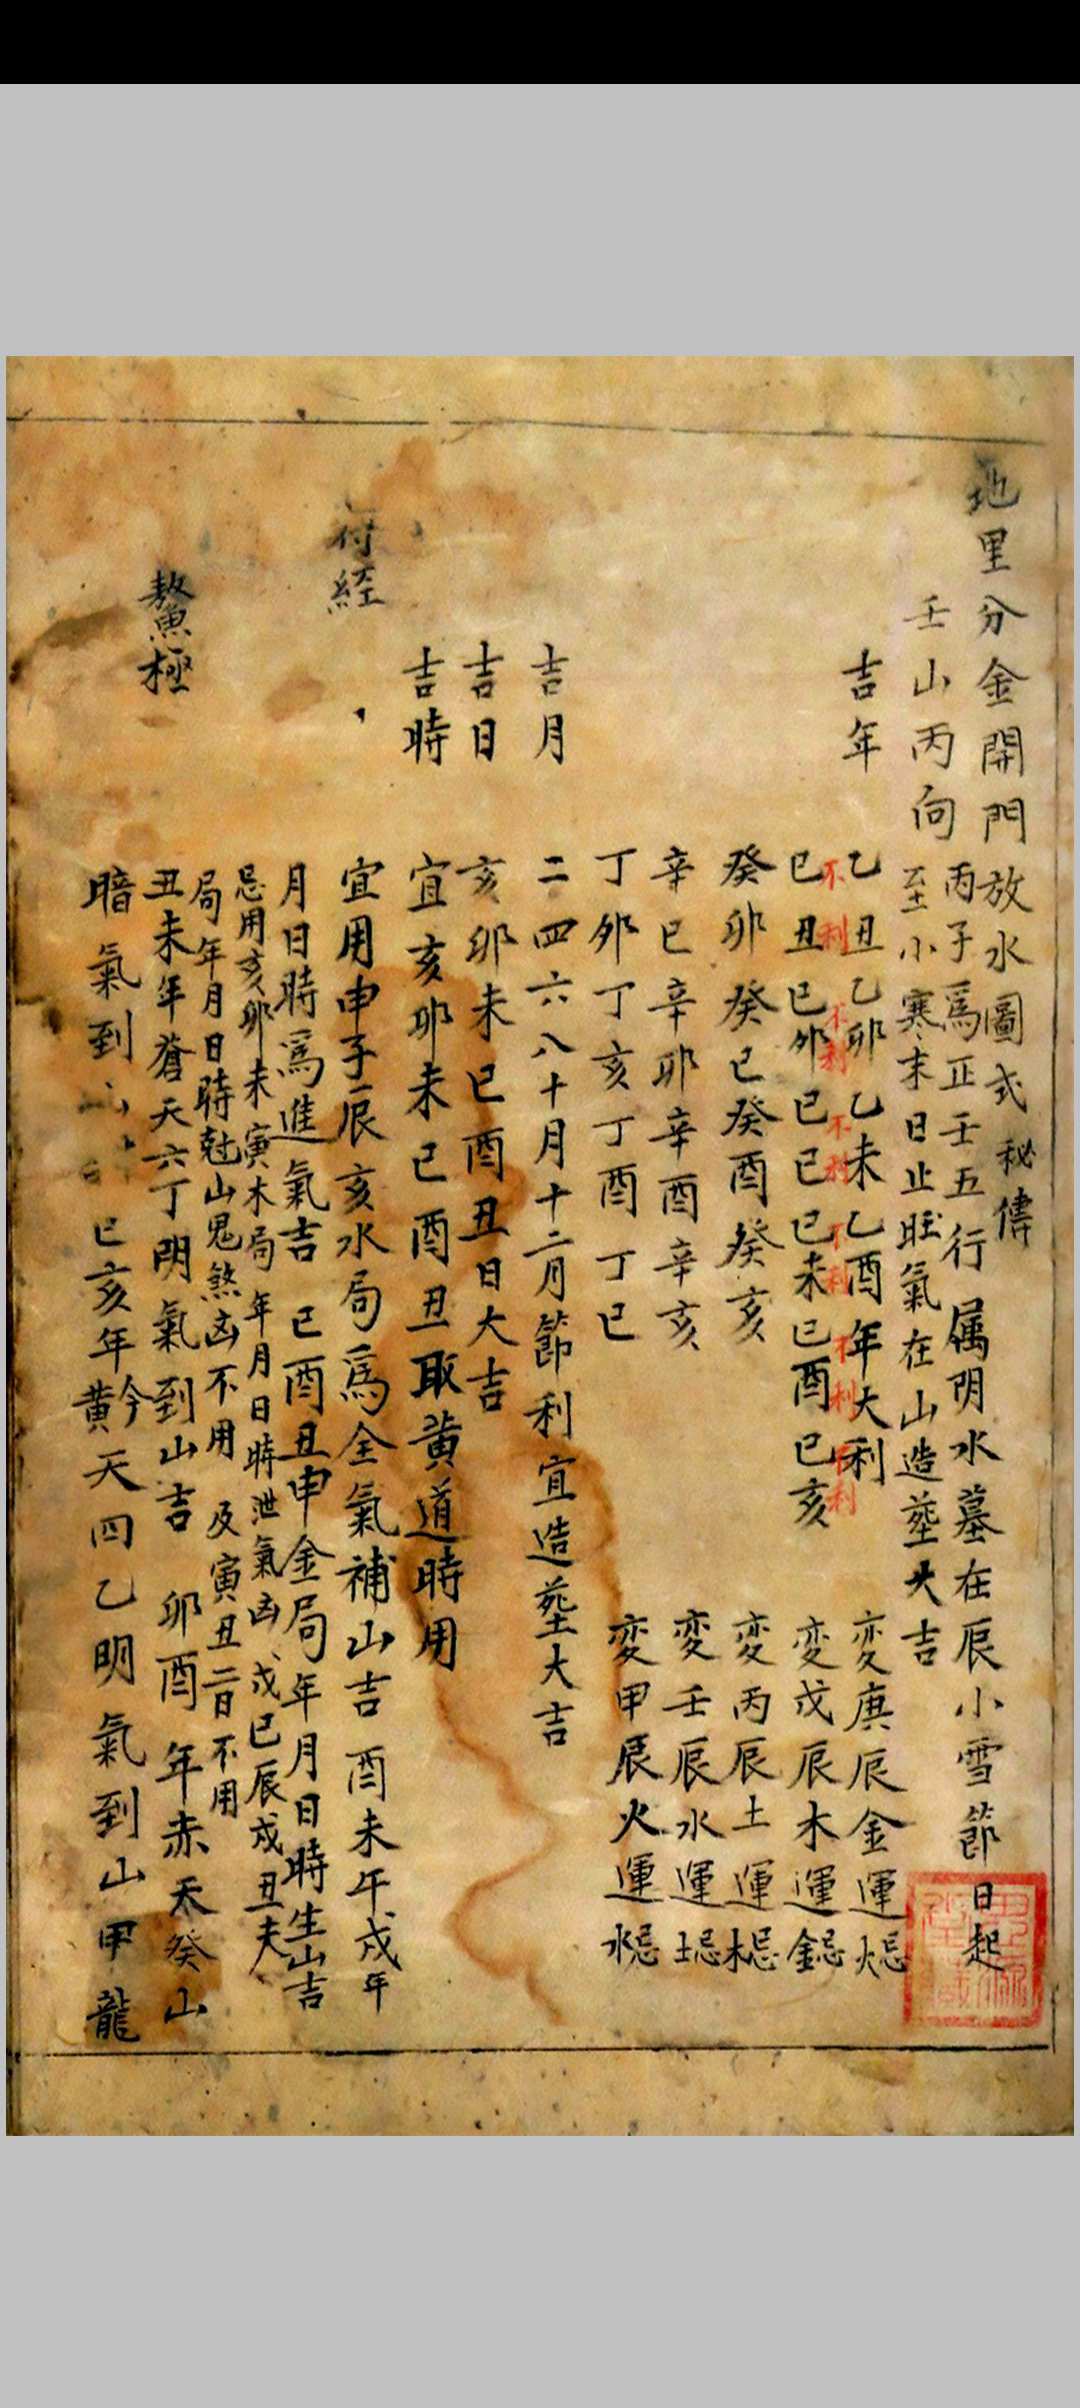 地里分金開門放水圖式 秘傳
壬山丙向
丙子為正壬五行属阴水墓在辰小雪節日起
至小寒末日止旺氣在山造塟大吉
吉年
乙丑乙卯乙未乙酉年大利 変庚辰金運忌火
不利 不利 不利 不利 不利 不利
己丑己卯己巳己未己酉己亥 変戊辰木運忌金
癸卯癸巳癸酉癸亥 変丙辰土運忌木
辛巳辛卯辛酉辛亥 変壬辰水運忌土
丁卯丁亥丁酉丁巳 変甲辰火運忌水
吉月
二四六八十月十二月節利宜造塟大吉
吉日
亥卯未巳酉丑日大吉
吉時
宜亥卯未巳酉丑取黄道時用
符経
宜用申子辰亥水局為全氣補山吉 酉未午戌年
月日時為進氣吉 巳酉丑申金局年月日時生山吉
忌用亥卯未寅木局年月日時泄氣凶戌巳辰戌丑夫
局年月日時尅山鬼煞凶不用 及寅丑二日不用
鰲極
丑未年蒼天六丁明氣到山吉 卯酉年赤天癸山
暗氣到山 巳亥年黄今天四乙明氣到山甲龍